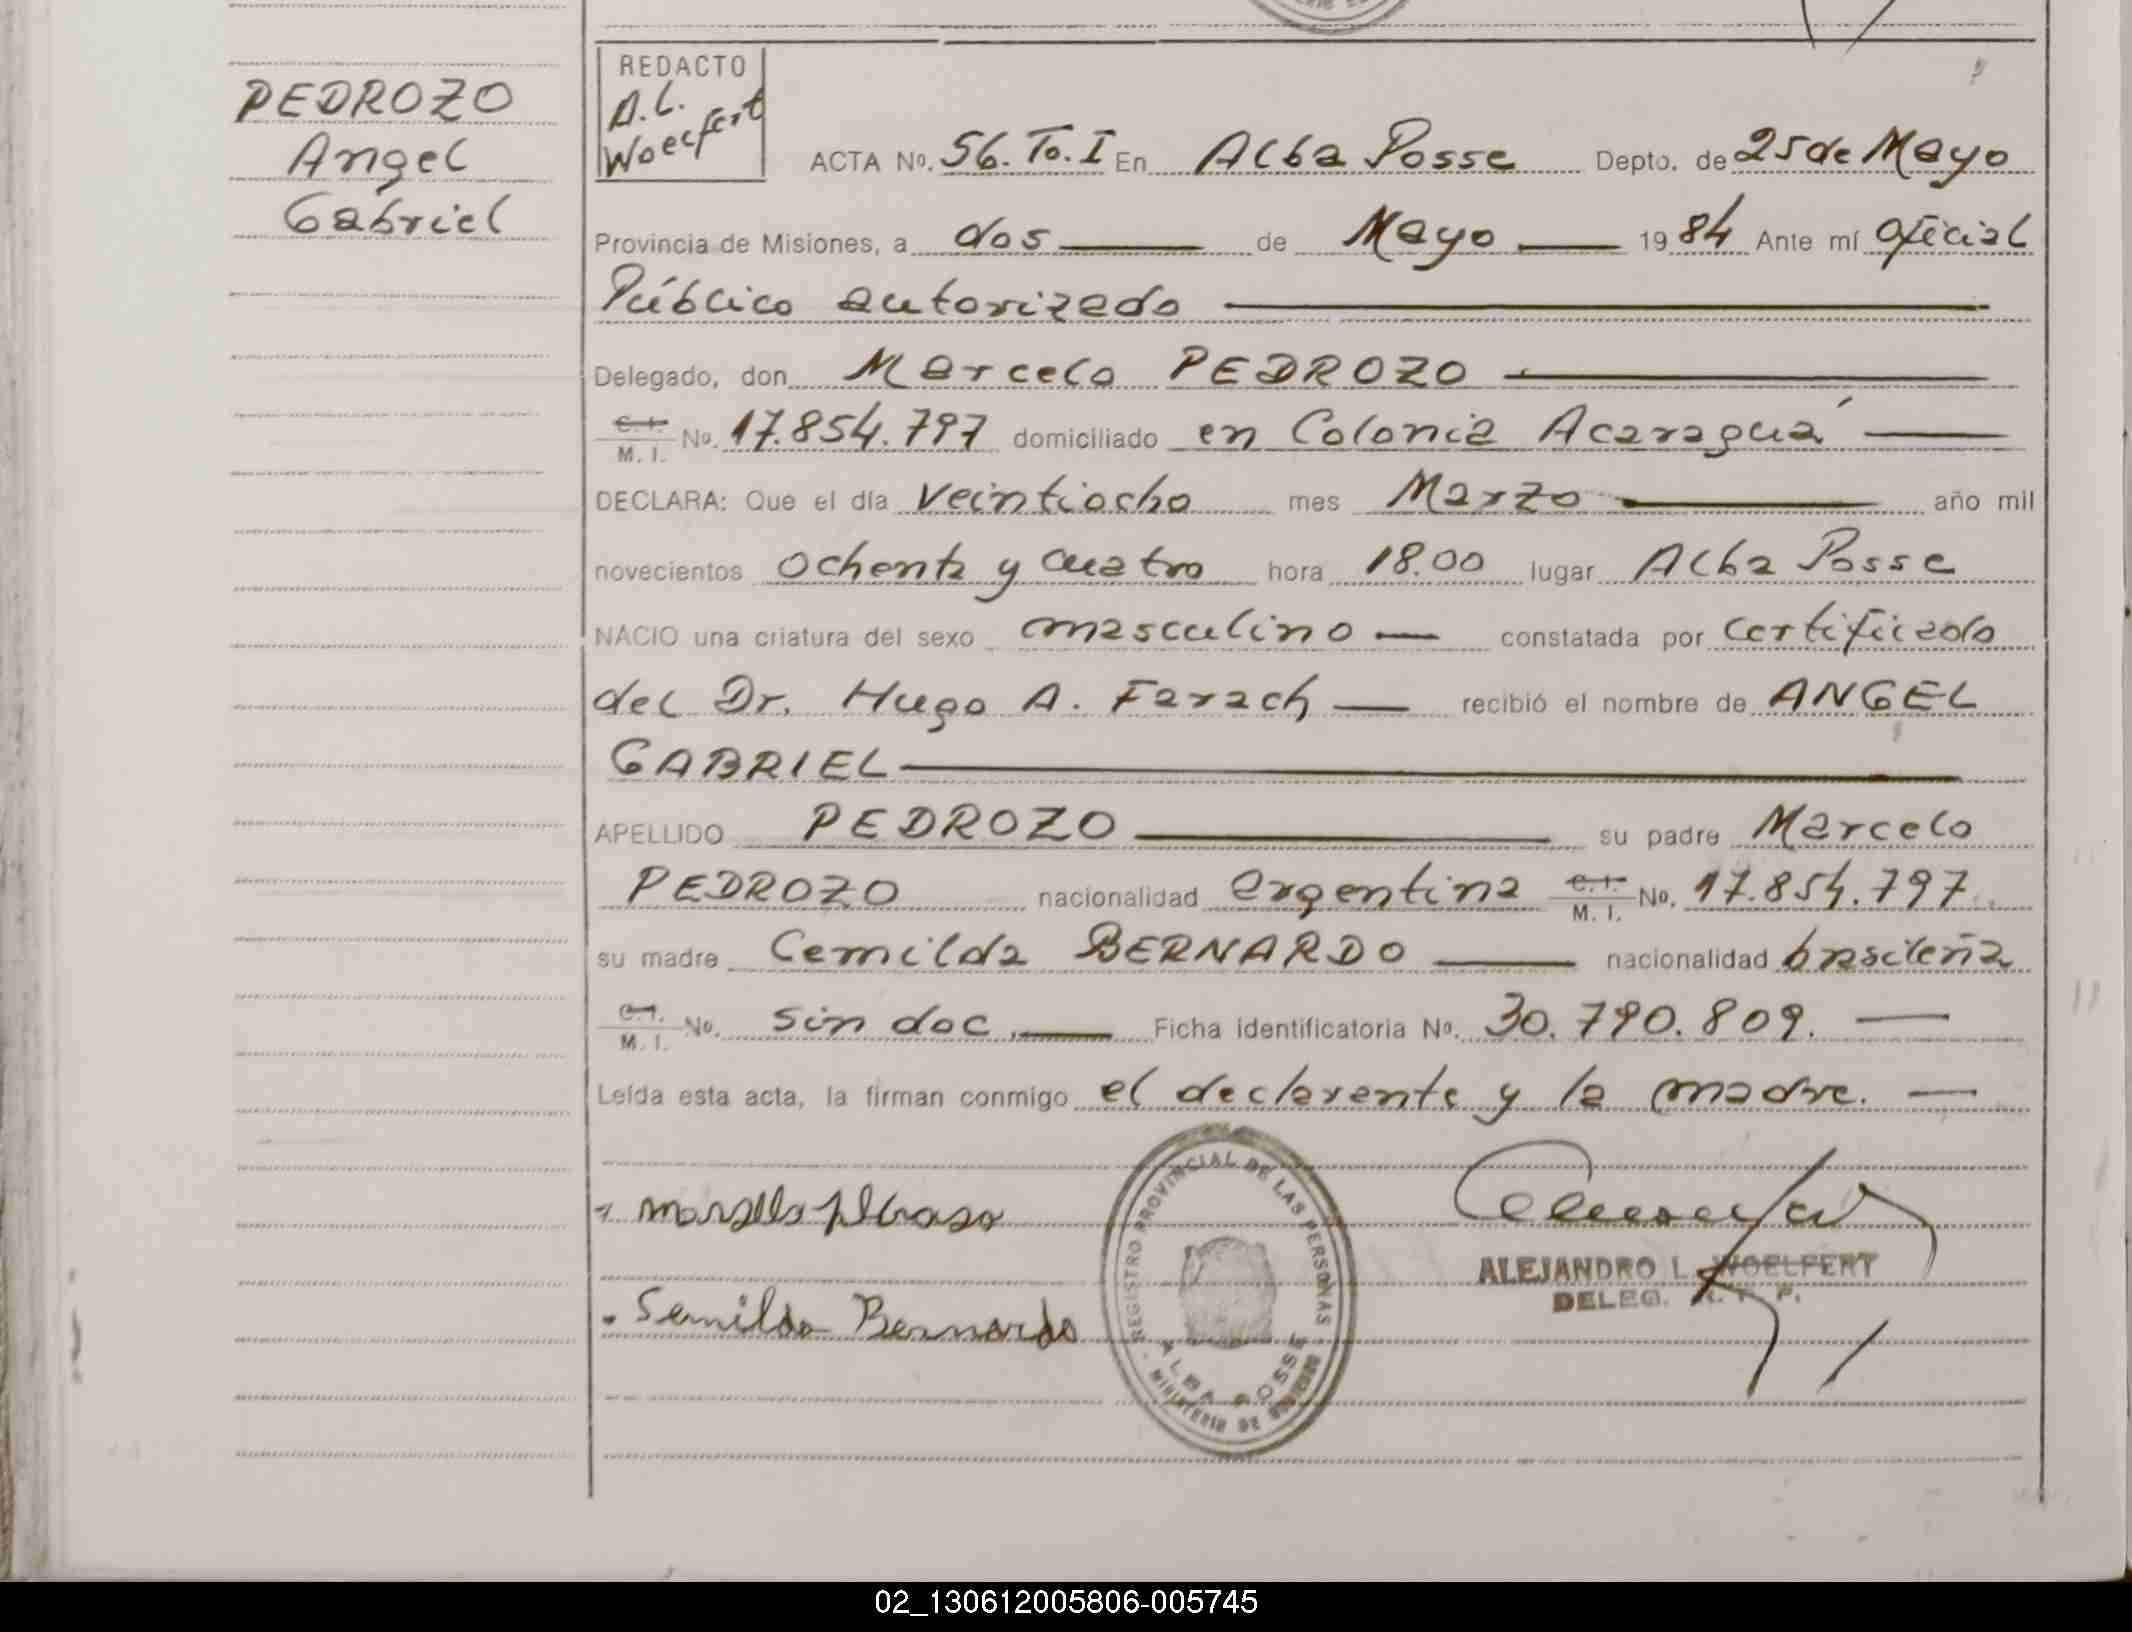 PEDROZO
Angel
Gabriel
REDACTO
A.L.
Woelfert
ACTA No. 56. To. I En Alba Posse Depto. de 25 de Mayo
Provincia de Misiones, a dos de Mayo 1984 Ante mí Oficial
Público autorizado
Delegado, don Marcelo PEDROZO
C. I. / M. I. No. 17.854.797 domiciliado en Colonia Acaraguá
DECLARA: Que el día veintiocho mes Marzo año mil
novecientos ochenta y cuatro hora 18.00 lugar Alba Posse
NACIO una criatura del sexo masculino constatada por certificado
del Dr. Hugo A. Farach recibió el nombre de ANGEL
GABRIEL
APELLIDO PEDROZO su padre Marcelo
PEDROZO nacionalidad argentina C. I. / M. I. No. 17.854.797.
su madre Cemilda BERNARDO nacionalidad brasileña
C. I. / M. I. No. sin doc. Ficha identificatoria No. 30.790.809.
Leída esta acta, la firman conmigo el declarante y la madre.
Semilda Bernardo
REGISTRO PROVINCIAL DE LAS PERSONAS
ALBA POSSE
MINISTERIO DE GOBIERNO
ALEJANDRO L. WOELFERT
DELEG. R. P. P.
02_130612005806-005745